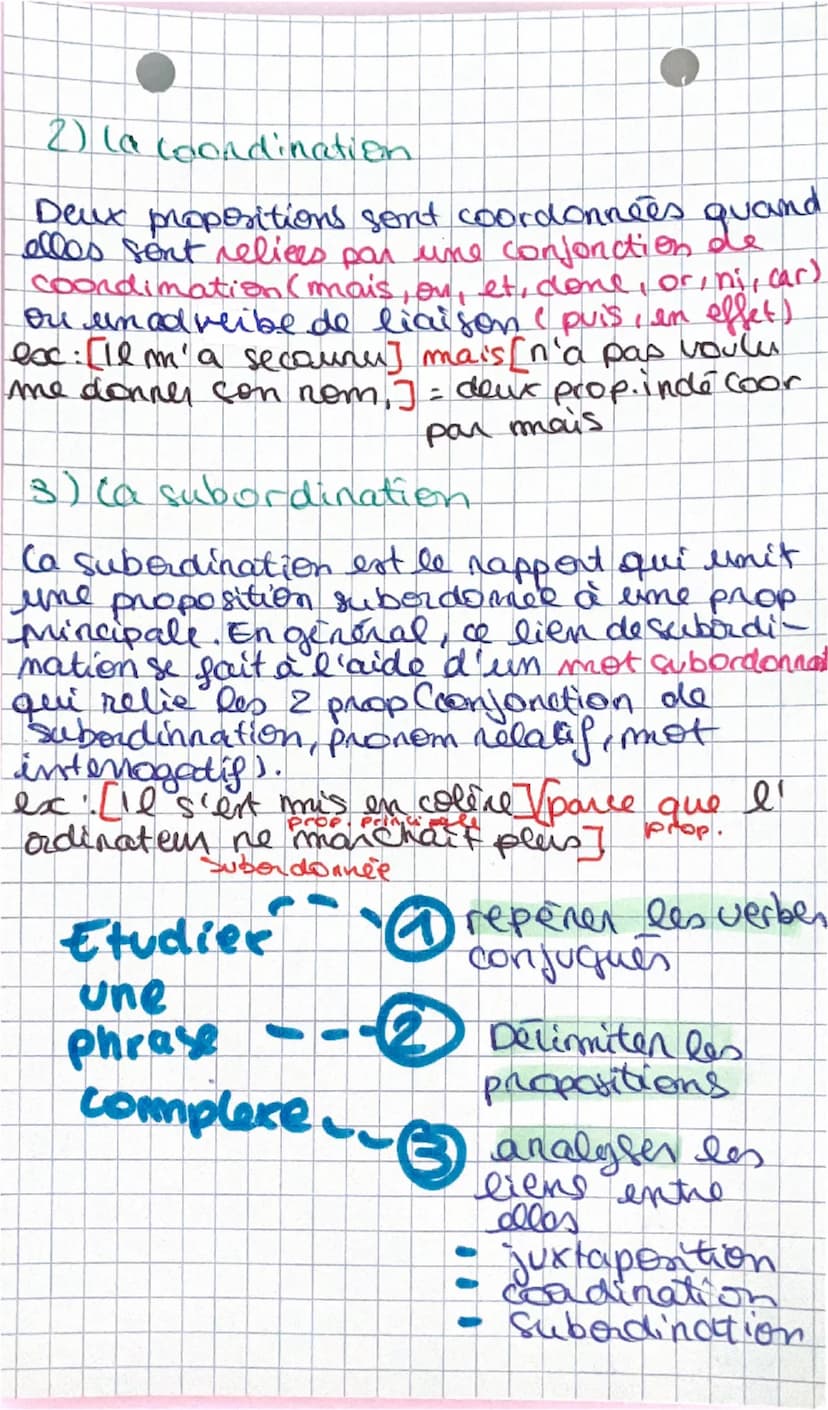 2) la coordination
Deux propositions sont coordonnées quand
elles sont reliées par une conjonction de
coordination (mais, ou, et, donc, or, ni, car)
ou un adverbe de liaison (puis, en effet)
ex : [Il m'a secouru] mais [n'a pas voulu
me donner son nom.] = deux prop. indé coor
par mais
3) la subordination
La subordination est le rapport qui unit
une proposition subordonnée à une prop
principale. En général, ce lien de subordi-
nation se fait à l'aide d'un mot subordonnat
qui relie les 2 prop (conjonction de
subordinnation, pronom relatif, mot
interrogatif).
ex : [Il s'est mis en colère] [parce que l'
prop. principale
ordinateur ne marchait plus] prop.
subordonnée
Etudier
une
phrase
complexe
1 repérer les verbes
conjugués
2 Délimiter les
propositions
3 analyser les
liens entre
elles
- juxtaposition
- coordination
- subordination